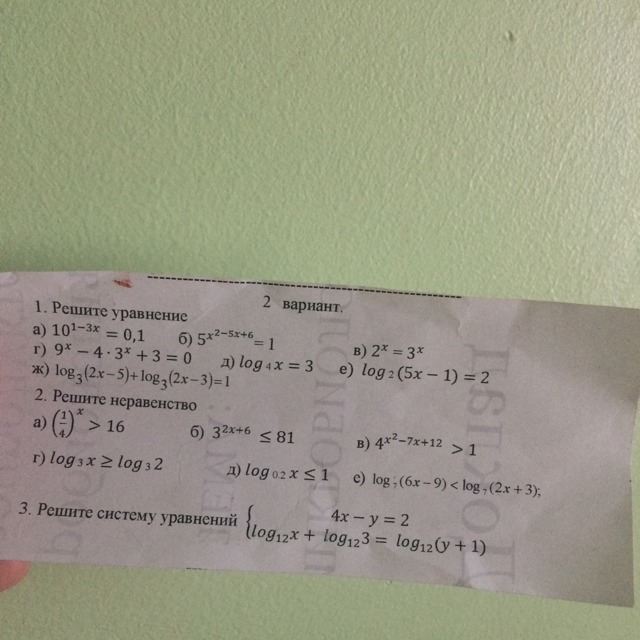 2 вариант.
1. Решите уравнение
а) 10^{1−3x} = 0,1 б) 5^{x^2−5x+6} = 1 в) 2^x = 3^x
г) 9^x − 4 · 3^x + 3 = 0 д) log_4 x = 3 е) log_2(5x − 1) = 2
ж) log_3(2x−5)+log_3(2x−3)=1
2. Решите неравенство
а) (1/4)^x > 16 б) 3^{2x+6} ≤ 81 в) 4^{x^2−7x+12} > 1
г) log_3 x ≥ log_3 2 д) log_{0.2} x ≤ 1 е) log_7(6x−9) < log_7(2x+3);
3. Решите систему уравнений { 4x − y = 2
log_{12}x + log_{12}3 = log_{12}(y + 1)